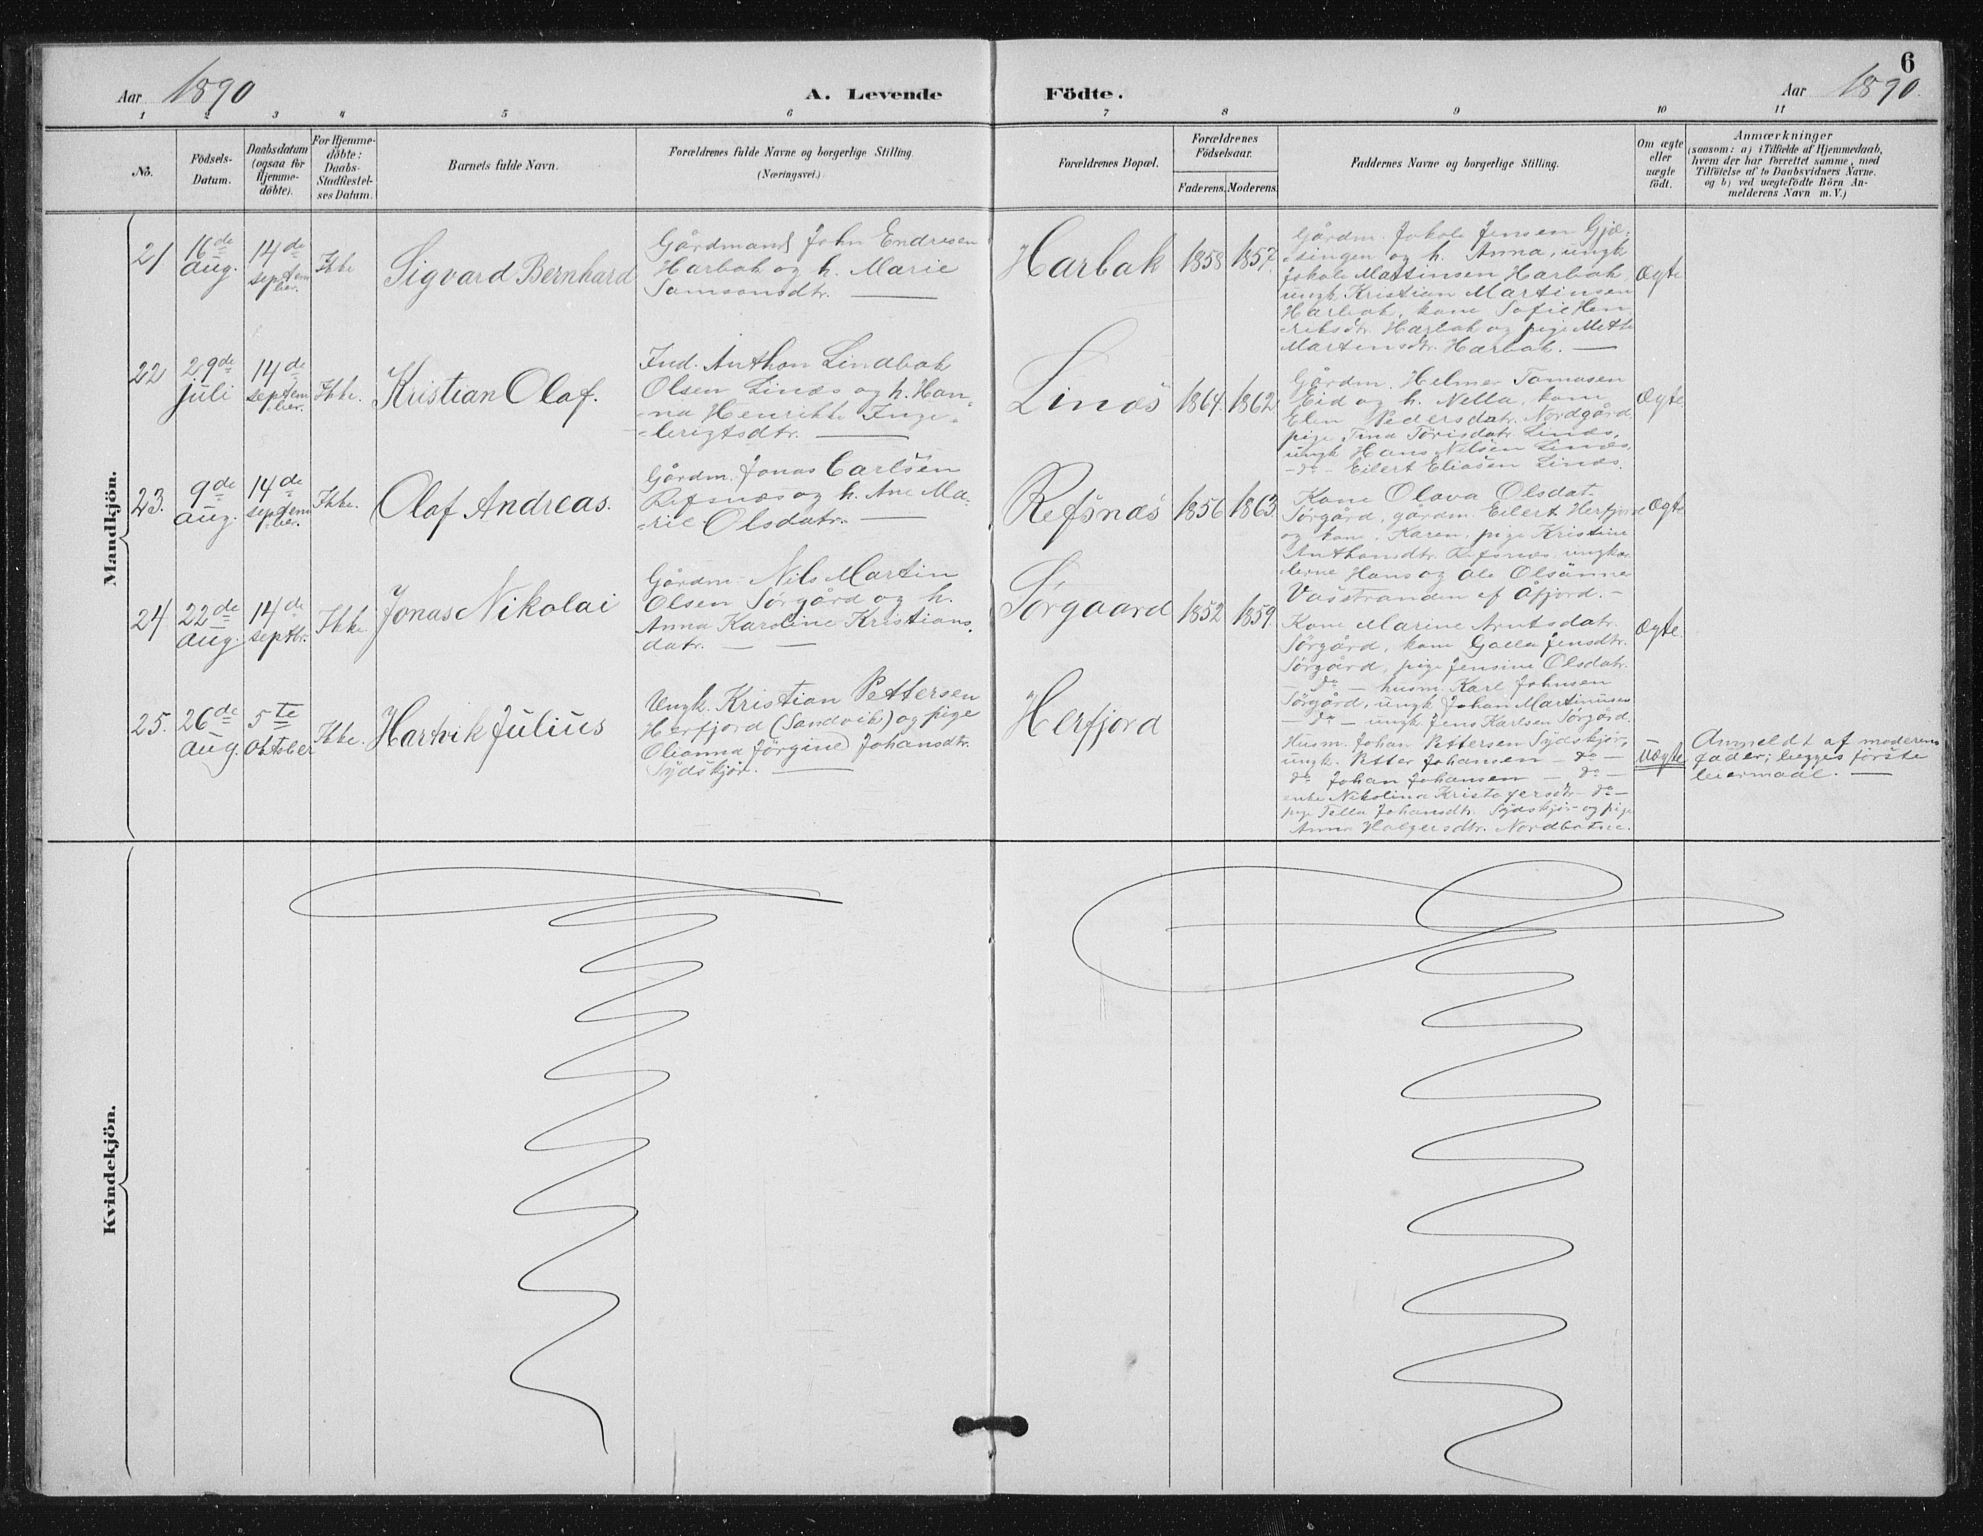 6
Aar 1890 A. Levende Födte. Aar 1890.
1 2 3 4 5 6 7 8 9 10 11
No.
Födsels-
Datum.
Daabsdatum
(ogsaa for
Hjemme-
döbte).
For Hjemme-
döbte:
Daabs-
Stadfæstel-
ses Datum.
Barnets fulde Navn.
Forældrenes fulde Navne og borgerlige Stilling.
(Næringsvei.)
Forældrenes Bopæl.
Forældrenes
Födselsaar.
Faderens. Moderens.
Faddernes Navne og borgerlige Stilling.
Om ægte
eller
uægte
födt.
Anmærkninger
(saasom: a) i Tilfælde af Hjemmedaab,
hvem der har forrettet samme, med
Tilföielse af to Daabsvidners Navne.
og b) ved uægtefödte Börn An-
melderens Navn m. V.)
Mandkjön.
21
16de
aug.
14de
septem
ber.
Ikke
Sigvard Bernhard
Gårdmand John Endresen
Harbak og h. Marie
Samsonsdtr. —
Harbak
1858
1857.
Gårdm. Jakob Jensen Gjæ-
singen og h. Anna, ungk.
Jakob Martinsen Harbak
ungk. Kristian Martinsen
Harbak, kone Sofie Hen
riksdtr. Harbak og pige Mette
Martinsdtr. Harbak. —
Ægte
22
29de
juli
14de
septem
ber.
Ikke.
Kristian Olaf.
Ind. Anthon Lindbak
Olsen Linæs og h. Han-
-na Henrikke Inge-
-brigtsdtr. —
Linæs
1864.
1862
Gårdm. Helmer Tomasen
Eid og h. Nella, kone
Elen Pedersdatr. Nordgård,
pige Tina Törisdatr. Linæs,
ungk Hans Nilsen Linæs,
- do - Eilert Eliasen Linæs.
Ægte
23.
9de
aug.
14de
septem
ber.
Ikke.
Olaf Andreas.
Gårdm. Jonas Carlsen
Refsnæs og h. Ane Ma-
-rie Olsdatr. —
Refsnæs
1856
1863.
Kone Olava Olsdat.
Sørgård, gårdm. Eilert Herfjord
og kone Karen, pige Kristine
Anthonsdtr. Refsnæs, ungka
lerne Hans og Ole Olsönner
Vasstranden af Åfjord. -
Ægte
24
22de
aug.
14de
septbr.
Ikke.
Jonas Nikolai
Gårdm. Nils Martin
Olsen Sørgård og h.
Anna Karoline Kristians.
datr. — —
Sørgaard
1852
1859.
Kone Marine Arntsdatr.
Sørgård, kone Jensdtr.
Sørgård, pige Jensine Olsdatr.
- do - husm. Karl Johnsen
Sørgård, ungk Johan Martinusen
- do - ungk. Jens Karlsen Sørgård.
Ægte.
25.
26de
aug.
5te
Oktober
Ikke.
Hartvik Julius
Ungk. Kristian Pettersen
Herfjord (Sandvik) og pige
Olianna Jörgine Johansdtr.
Sydskjør. —
Herfjord
Husm. Johan Pettersen Sydskjør,
ungk. Petter Johansen - do -
do Johan Johansen - do -
enke Nikolina Kristofersdtr - do -
pige Tella Johansdtr. Sydskjør og pige
Anna Holgersdtr. Nordbotne.
Uægte
Anmeldt af moderens
fader; begges første
leiermaal. —
Kvindekjön.